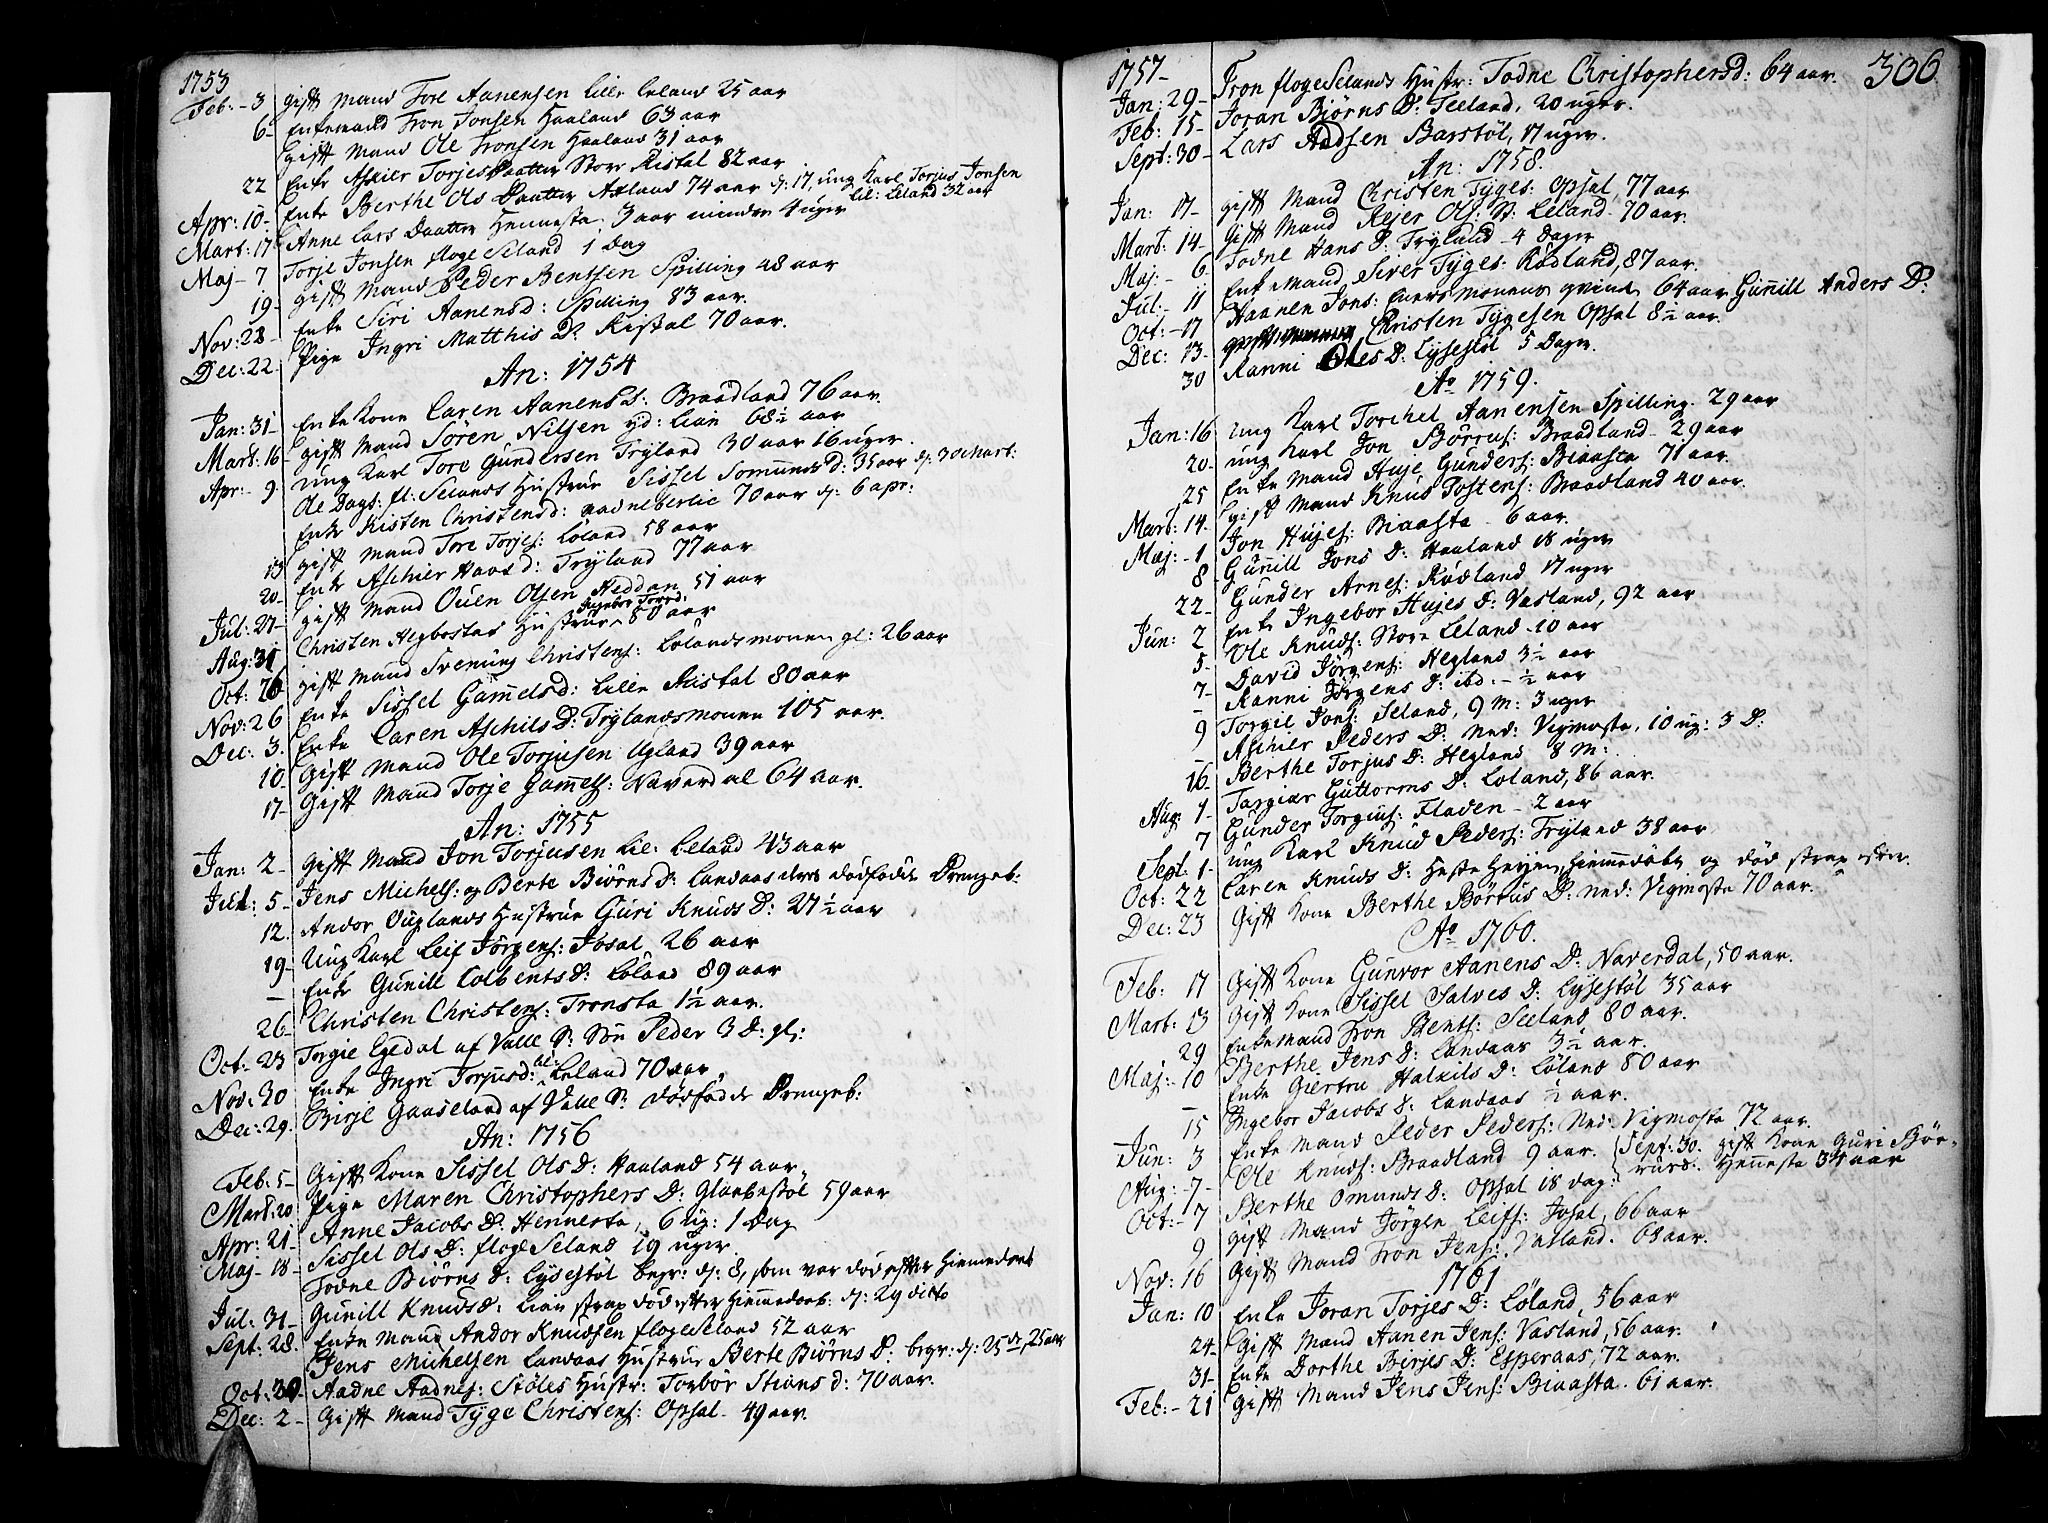 1753
Feb: - 3 gift Mand Tore Aanensen Lille Leland 25 aar
6 - Enkemand Tron Jonsen Haaland 63 aar
gift Mand Ole Tronsen Haaland 31 aar
22 Enke Askier Torjes Daatter Store Kistal 82 aar
Apr: 10 - Enke Berthe Ols Daatter Axland 74 aar d: 17, ung Karl Torjus Jonsen lil: Leland 32 aar
Mart: 17 Anne Lars Daatter Hennesta, 3 aar mindre 4 uger
Maj - 7 Torje Jonsen floge Seland 1 Dag
19 - gift Mand Peder Bentsen Spilling 48 aar
Nov: 28 - Enke Siri Aanensd: Spilling 83 aar.
Dec: 22 - Pige Ingri Matthis D: Kistal 70 aar.
An: 1754
Jan: 31 - Enke Kone Caren Aanensd: Braadland 76 aar.
Mart: 16 - gift Mand Sören Nilsen yd: Lian 68½ aar
Apr: - 9 ung Karl Tore Gundersen Trÿland 30 aar 16 uger.
Ole Dags: fl: Selands Hustrue Sissel Somundsd: 35 aar d: 30 Mart:
Enke Kisten Christensd: aadneberlie 70 aar d: 6 apr:
13 gift Mand Tore Torjes: Löland 58 aar
20 - Enke Aschier Hansd: Trÿland 77 aar
Jul: 27 - gift Mand Ouen Olsen Heddan 51 aar
Aug: 31 Christen Hegbostad Hustrue Ingebor Torsd: 80 aar
Oct: 26 gift Mand Svenung Christens: Lölandsmonen gl: 26 aar
Nov: 26 Enke Sissel Gamelsd: Lille Kistal 80 aar
Dec: 3. Enke Caren Aschils D: Trÿlandsmonen 105 aar.
10 gift Mand Ole Torjusen Ugland 39 aar
17 - Gift Mand Torje Gamels: Naverdal 64 aar.
An: 1755
Jan: 2 - gift Mand Jon Torjusen Lil: Leland 43 aar
Jul: 5 - Jens Michels: og Berte Biörns D: Landaas deres dödfödde Drengeb:
12. Andor Ouglands Hustrue Guri Knuds D: 27½ aar
19 - Ung Karl Leif Jörgens: Josal 26 aar
- Enke Gunill Colbents D: Löland 89 aar
26 - Christen Christens: Tronsta 1½ aar.
Oct: 23 Torgie Egedal af Valle S: Sön Peder 3 D: gl:
Nov: 30 Enke Ingri Torjusd: lil: Leland 70 aar,
Dec: 29. Birje Gaaseland af Valle S: dödfödde Drengeb:
An: 1756
Feb: 5 - Gift Kone Sissel Ols D: Haaland 54 aar.
Mart: 20 Pige Maren Christophers D: Glaabestöl 59 aar
Apr: 21 - Anne Jacobs D: Hennesta, 6 ug: 1 Dag
Maj - 18 - Sissel Ols D: floge Seland 19 uger.
Todne Biörns D: Lÿsestöl begr: d: 8, som var död efter Hiemmedaab
Jul: 31 - Gunill Knudsd: Lian strax död efter Hiemmedaab: d: 29 ditto
Sept: 28. Enke Mand Andor Knudsen floge Seland 52 aar
Jens Michelsen Landaas Hustrue Berte Biörns D: begr: d: 25de, 25 aar
Oct: 30 - Aadne Aadnes: Stöles Hustr: Torbor Stians d: 70 aar.
Dec: 2 - Gift Mand Tÿge Christens: Opsal - 49 aar.
306
1757 - Tron floge Selands Hustr: Todne Christophersd: 64 aar.
Jan: 29 - Joran Biörns D: Seeland, 20 uger.
Feb: 15 - Lars Aadsen Barstöl, 17 uger.
Sept: 30 -
An: 1758.
Jan: 17 - gift Mand Christen Tÿges: Opsal, 77 aar
Mart: 14 - gift Mand Rejer Ols: St: Leland - 70 aar.
Maj: - 6 Todne Hans D: Trÿland - 4 Dager
Jul: - 11 Enke Mand Siver Tÿges: Rödland, 87 aar.
Oct: - 17 Haanen Jons: Eversmonens qvinde 64 aar Gunill Anders D:
Dec: 13 - Christen Tÿgesen Opsal 8½ aar.
30 Ranni Oles D: Lÿsestöl 5 Dager.
Ao 1759.
Jan: 16 ung Karl Torchel Aanensen Spilling - 29 aar
20 - ung Karl Jon Börrus: Braadland - 29 aar
25 Enke Mand Huje Gunders: Biaasta 71 aar.
Mart: 14 - gift Mand Knud Tostens: Braadland 40 aar.
Maj: - 1 Jon Hujes: Biaasta - 6 aar.
8 Gunill Jons D: Haaland 18 uger
22 - Gunder Arnes: Rödland 17 uger
Jun: 2 Enke Ingebor Hujes D: Vasland, 92 aar
5 - Ole Knuds: Store Leland - 10 aar
7 - David Jörgens: Hegland 3½ aar
- Ranni Jörgens D: ibd: - ½ aar
9 Torgil Jons: Seland, 9 M: 3 uger
Aschier Peders D: Ned: Vigmosta, 10 ug: 3 D:
16 Berthe Torjus D: Hegland 8 M:
Aug: 1 - Targier Guttorms D: Loland, 86 aar.
7 Gunder Torgius: Fladen - 2 aar
Sept: 1 - ung Karl Knud Peders: Trÿland 38 aar
Oct: 22 Caren Knuds D: Heste Heyen, Hiemmedöbt og död strax efter.
Dec: 23 Gift Kone Berthe Börrus D: Ned: Vigmosta 70 aar.
Ao 1760.
Feb: 17 Gift Kone Gunvor Aanens D: Naverdal, 50 aar.
Mart: 13 Gift Kone Sissel Salves D: Lÿsestöl 35 aar
29 Enkemand Tron Bents: Seeland 80 aar.
Maj: - 10 Berthe Jens D: Landaas 3½ aar.
- Enke Giertru Halkils D: Löland 80 aar
15 Ingebor Jacobs D: Landaas ½ aar.
Jun: 3 Enke Mand Peder Peders: Ned: Vigmosta 72 aar.
Aug: - 7 - Ole Knuds: Braadland 9 aar. Sept: 30. gift Kone Guri Bör-
Oct: - 7 Berthe Omunds D: Opsal 18 dag: rusd: Hennesta 34 aar
9 gift Mand Jörgen Leifs: Josal, 66 aar
Nov: 16 Gift Mand Tron Jens: Vatland. 68 aar.
1761
Jan: 10 Enke Joran Torjes D: Löland, 56 aar
24 - Gift Mand Aanen Jens: Vasland, 56 aar.
31 - Enke Dorthe Birjes D: Esperaas, 72 aar.
Feb: - 21 Gift Mand Jens Jens: Biaasta. 61 aar.